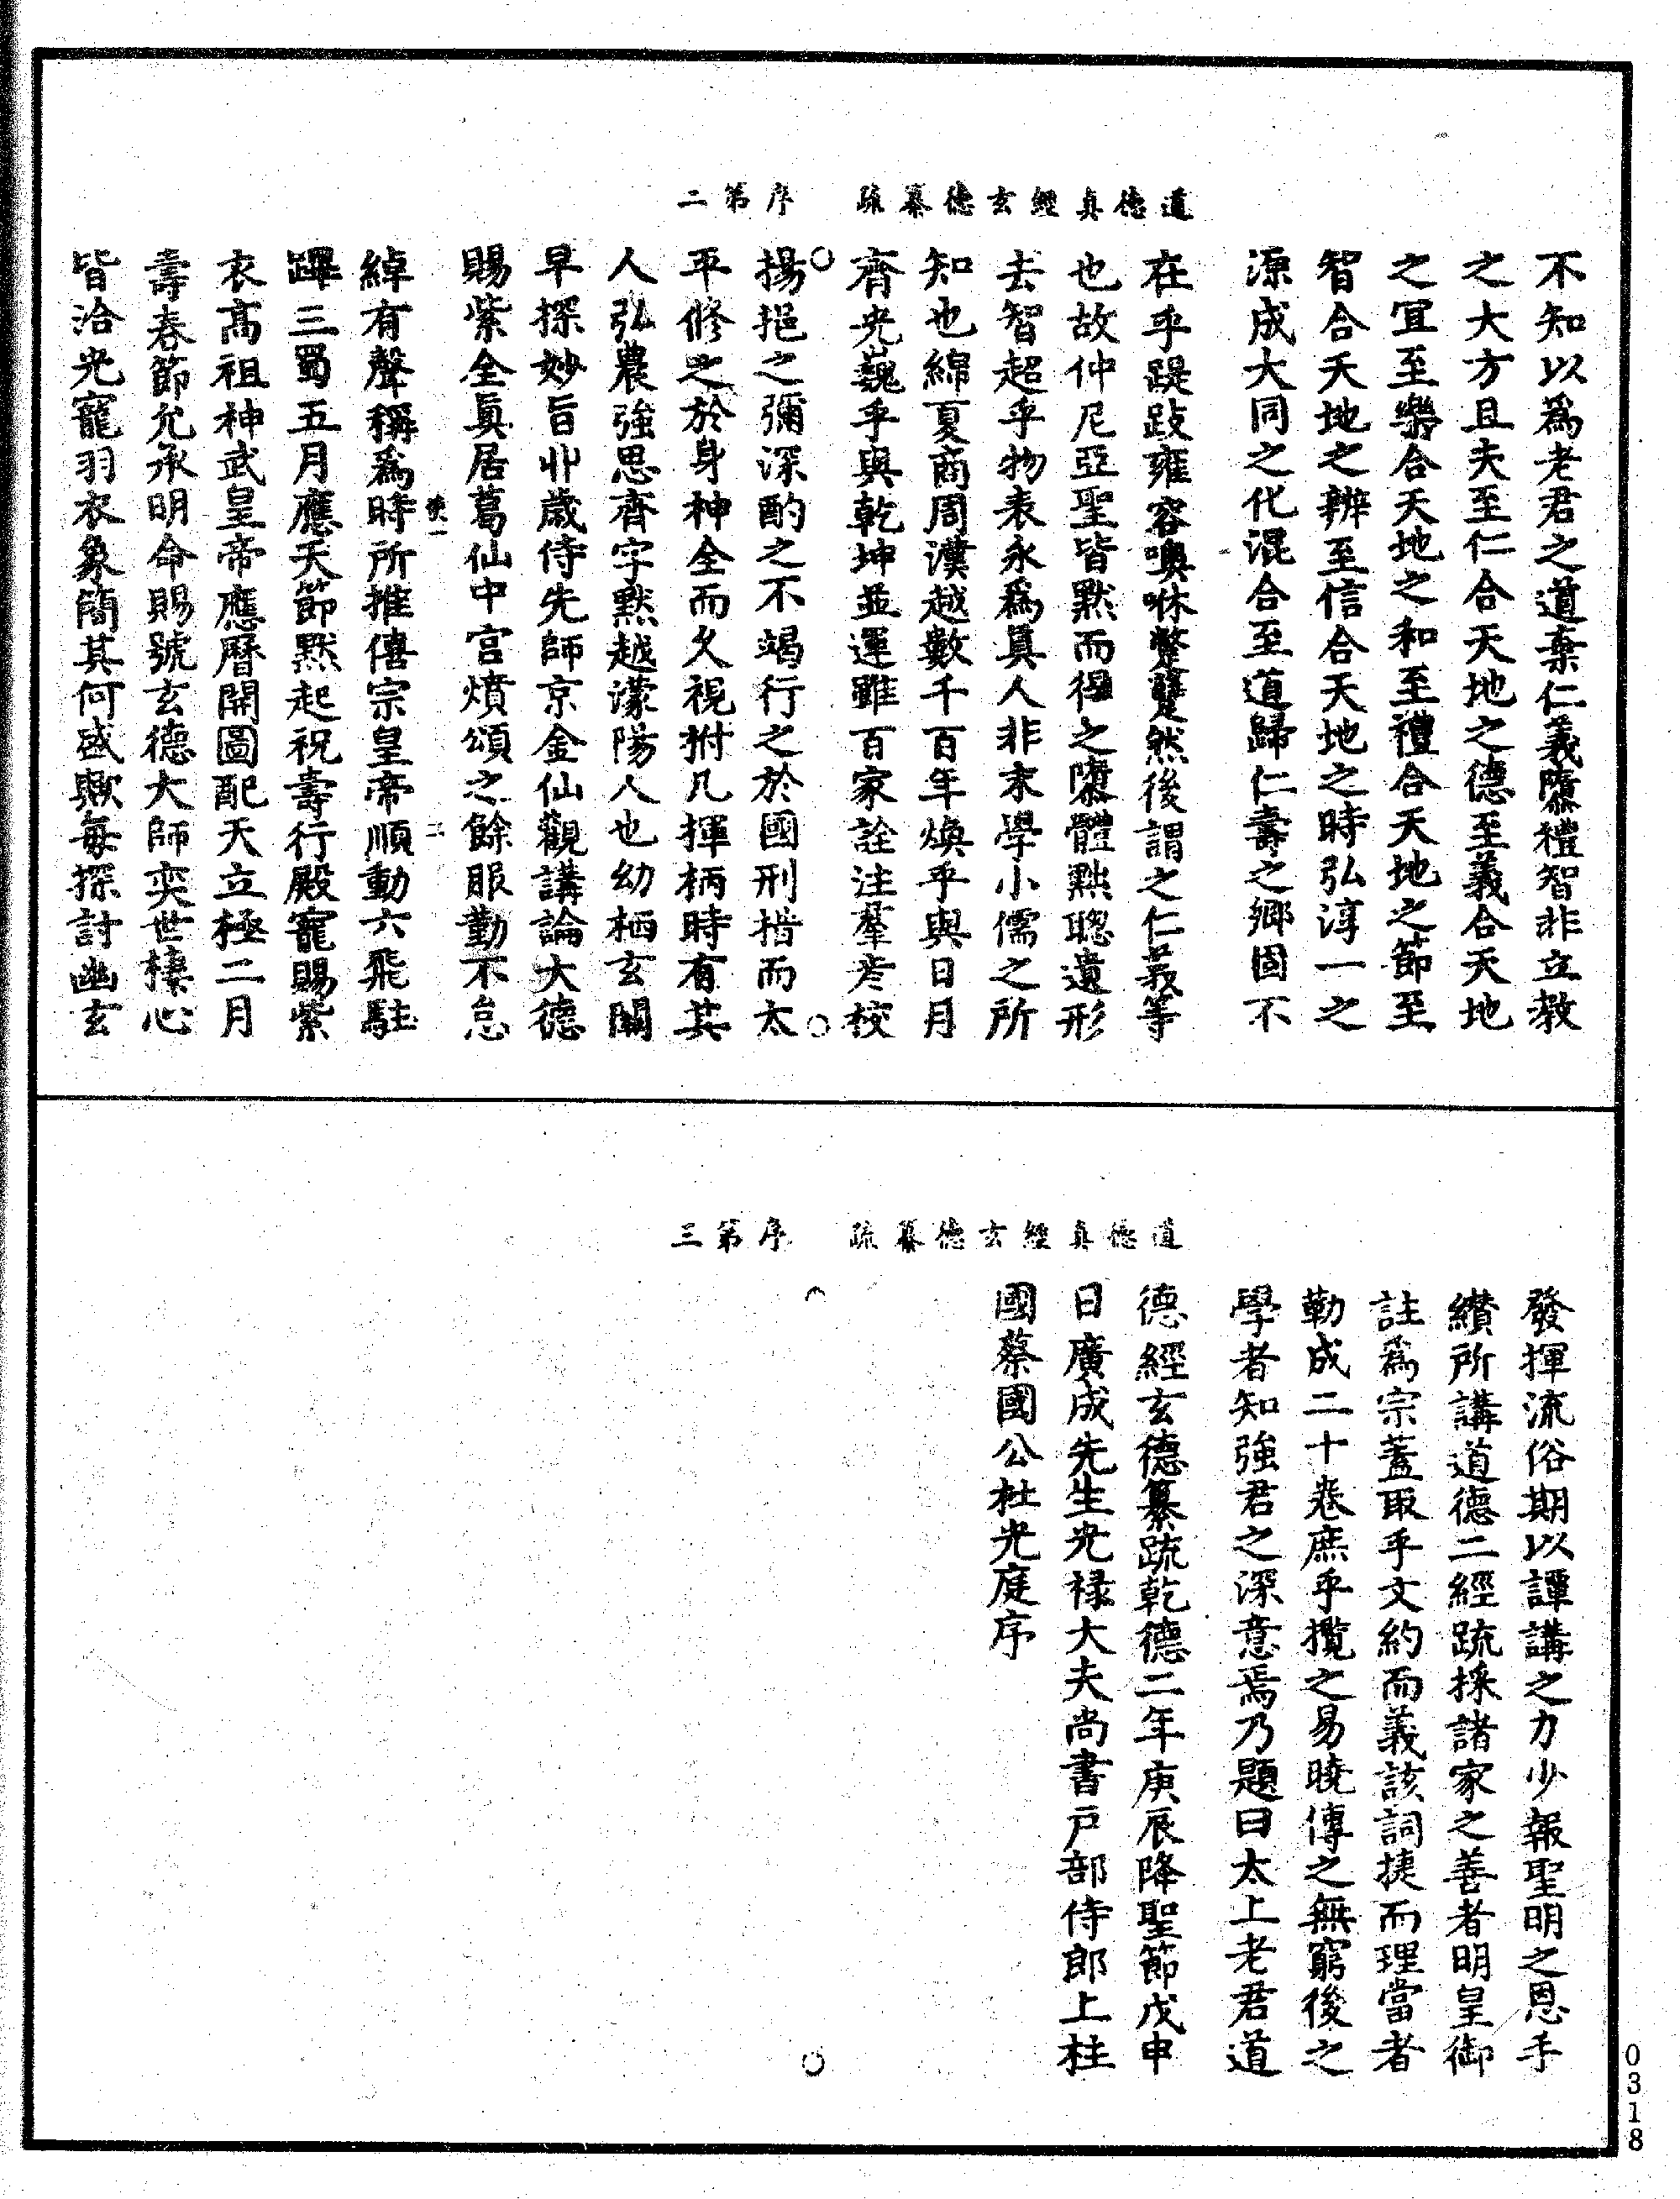 道德真經玄德纂疏　序　第二
不知以爲老君之道棄仁義隳禮智非立教
之大方且夫至仁合天地之德至義合天地
之宜至樂合天地之和至禮合天地之節至
智合天地之辨至信合天地之時弘淳一之
源成大同之化混合至道歸仁壽之鄉固不
在乎踶跂雍容噢咻蹩躠然後謂之仁義等
也故仲尼亞聖皆默而得之隳體黜聰遺形
去智超乎物表永爲真人非末學小儒之所
知也綿夏商周漢越數千百年煥乎與日月
齊光巍乎與乾坤並運雖百家詮注羣彥校
揚挹之彌深酌之不竭行之於國刑措而太
平修之於身神全而久視拊几揮柄時有其
人弘農強思齊字默越濛陽人也幼栖玄關
早探妙旨丱歲侍先師京金仙觀講論大德
賜紫全真居葛仙中宮墳頌之餘服勤不怠
綽有聲稱爲時所推僖宗皇帝順動六飛駐
蹕三蜀五月應天節默起祝壽行殿寵賜紫
衣高祖神武皇帝應曆開圖配天立極二月
壽春節允承明命賜號玄德大師奕世棲心
皆洽光寵羽衣象簡其何盛歟每探討幽玄
道德真經玄德纂疏　序　第三
發揮流俗期以譚講之力少報聖明之恩手
纘所講道德二經疏採諸家之善者明皇御
註爲宗蓋取乎文約而義該詞捷而理當者
勒成二十卷庶乎攬之易曉傳之無窮後之
學者知強君之深意焉乃題曰太上老君道
德經玄德纂疏乾德二年庚辰降聖節戊申
日廣成先生光祿大夫尚書戶部侍郎上柱
國蔡國公杜光庭序
0318